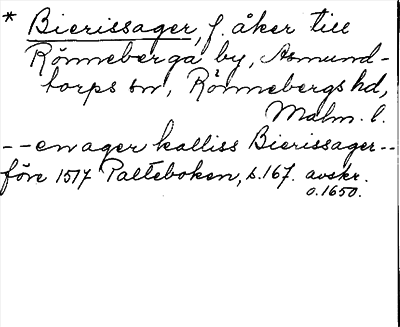 * Bierissager, f. åker till
Rönneberga by, Asmund-
torps sn, Rönnebergs hd,
Malm. l.
-- en ager kalliss Bierissager --
före 1517 Palteboken, s. 167. avskr.
o. 1650.